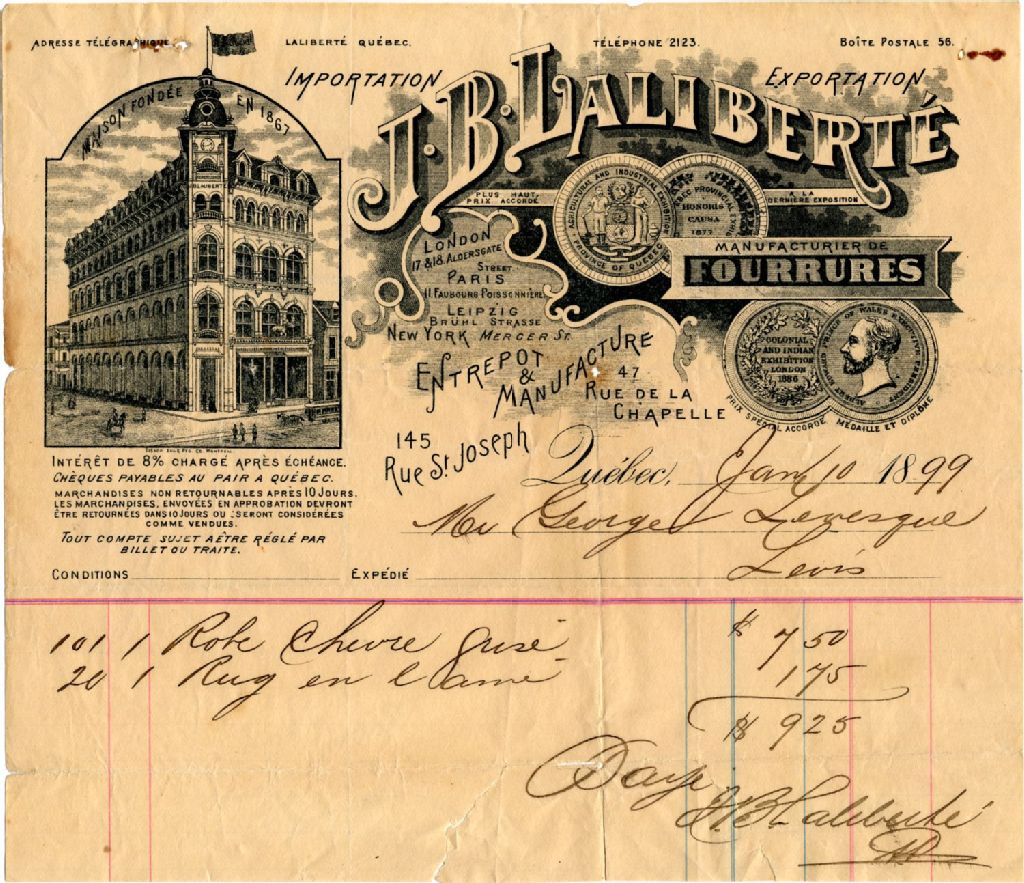 ADRESSE TÉLÉGRAPHIQUE. LALIBERTÉ QUÉBEC. TÉLÉPHONE 2123. BOÎTE POSTALE 56.
IMPORTATION EXPORTATION
J.B. LALIBERTÉ
MAISON FONDÉE EN 1867
J.B. LALIBERTÉ
PLUS HAUT PRIX ACCORDÉ
A LA DERNIÈRE EXPOSITION
AGRICULTURAL AND INDUSTRIAL EXHIBITION
PROVINCE OF QUEBEC
HONORIS
CAUSA
1877
MANUFACTURIER DE
FOURRURES
LONDON
17 & 18 ALDERSGATE
STREET
PARIS
11 FAUBOURG POISSONNIÈRE
LEIPZIG
BRÜHL STRASSE
NEW YORK MERCER ST.
COLONIAL
AND INDIAN
EXHIBITION
LONDON
1886
PRIX SPÉCIAL ACCORDÉ MÉDAILLE ET DIPLÔME
ENTREPOT
&
MANUFACTURE
47
RUE DE LA
CHAPELLE
145
RUE ST JOSEPH
Québec, Jany 10 1899
Mr George Levesque
Levis
INTÉRÊT DE 8% CHARGÉ APRÈS ÉCHÉANCE.
CHÈQUES PAYABLES AU PAIR A QUÉBEC.
MARCHANDISES NON RETOURNABLES APRÈS 10 JOURS.
LES MARCHANDISES, ENVOYÉES EN APPROBATION DEVRONT
ÊTRE RETOURNÉES DANS 10 JOURS OU SERONT CONSIDÉRÉES
COMME VENDUES.
TOUT COMPTE SUJET A ÊTRE RÉGLÉ PAR
BILLET OU TRAITE.
CONDITIONS EXPÉDIÉ
101 1 Robe Chevre Grise $ 7 50
20 1 Rug en 1 75
$ 9 25
Paye
J.B. Laliberté